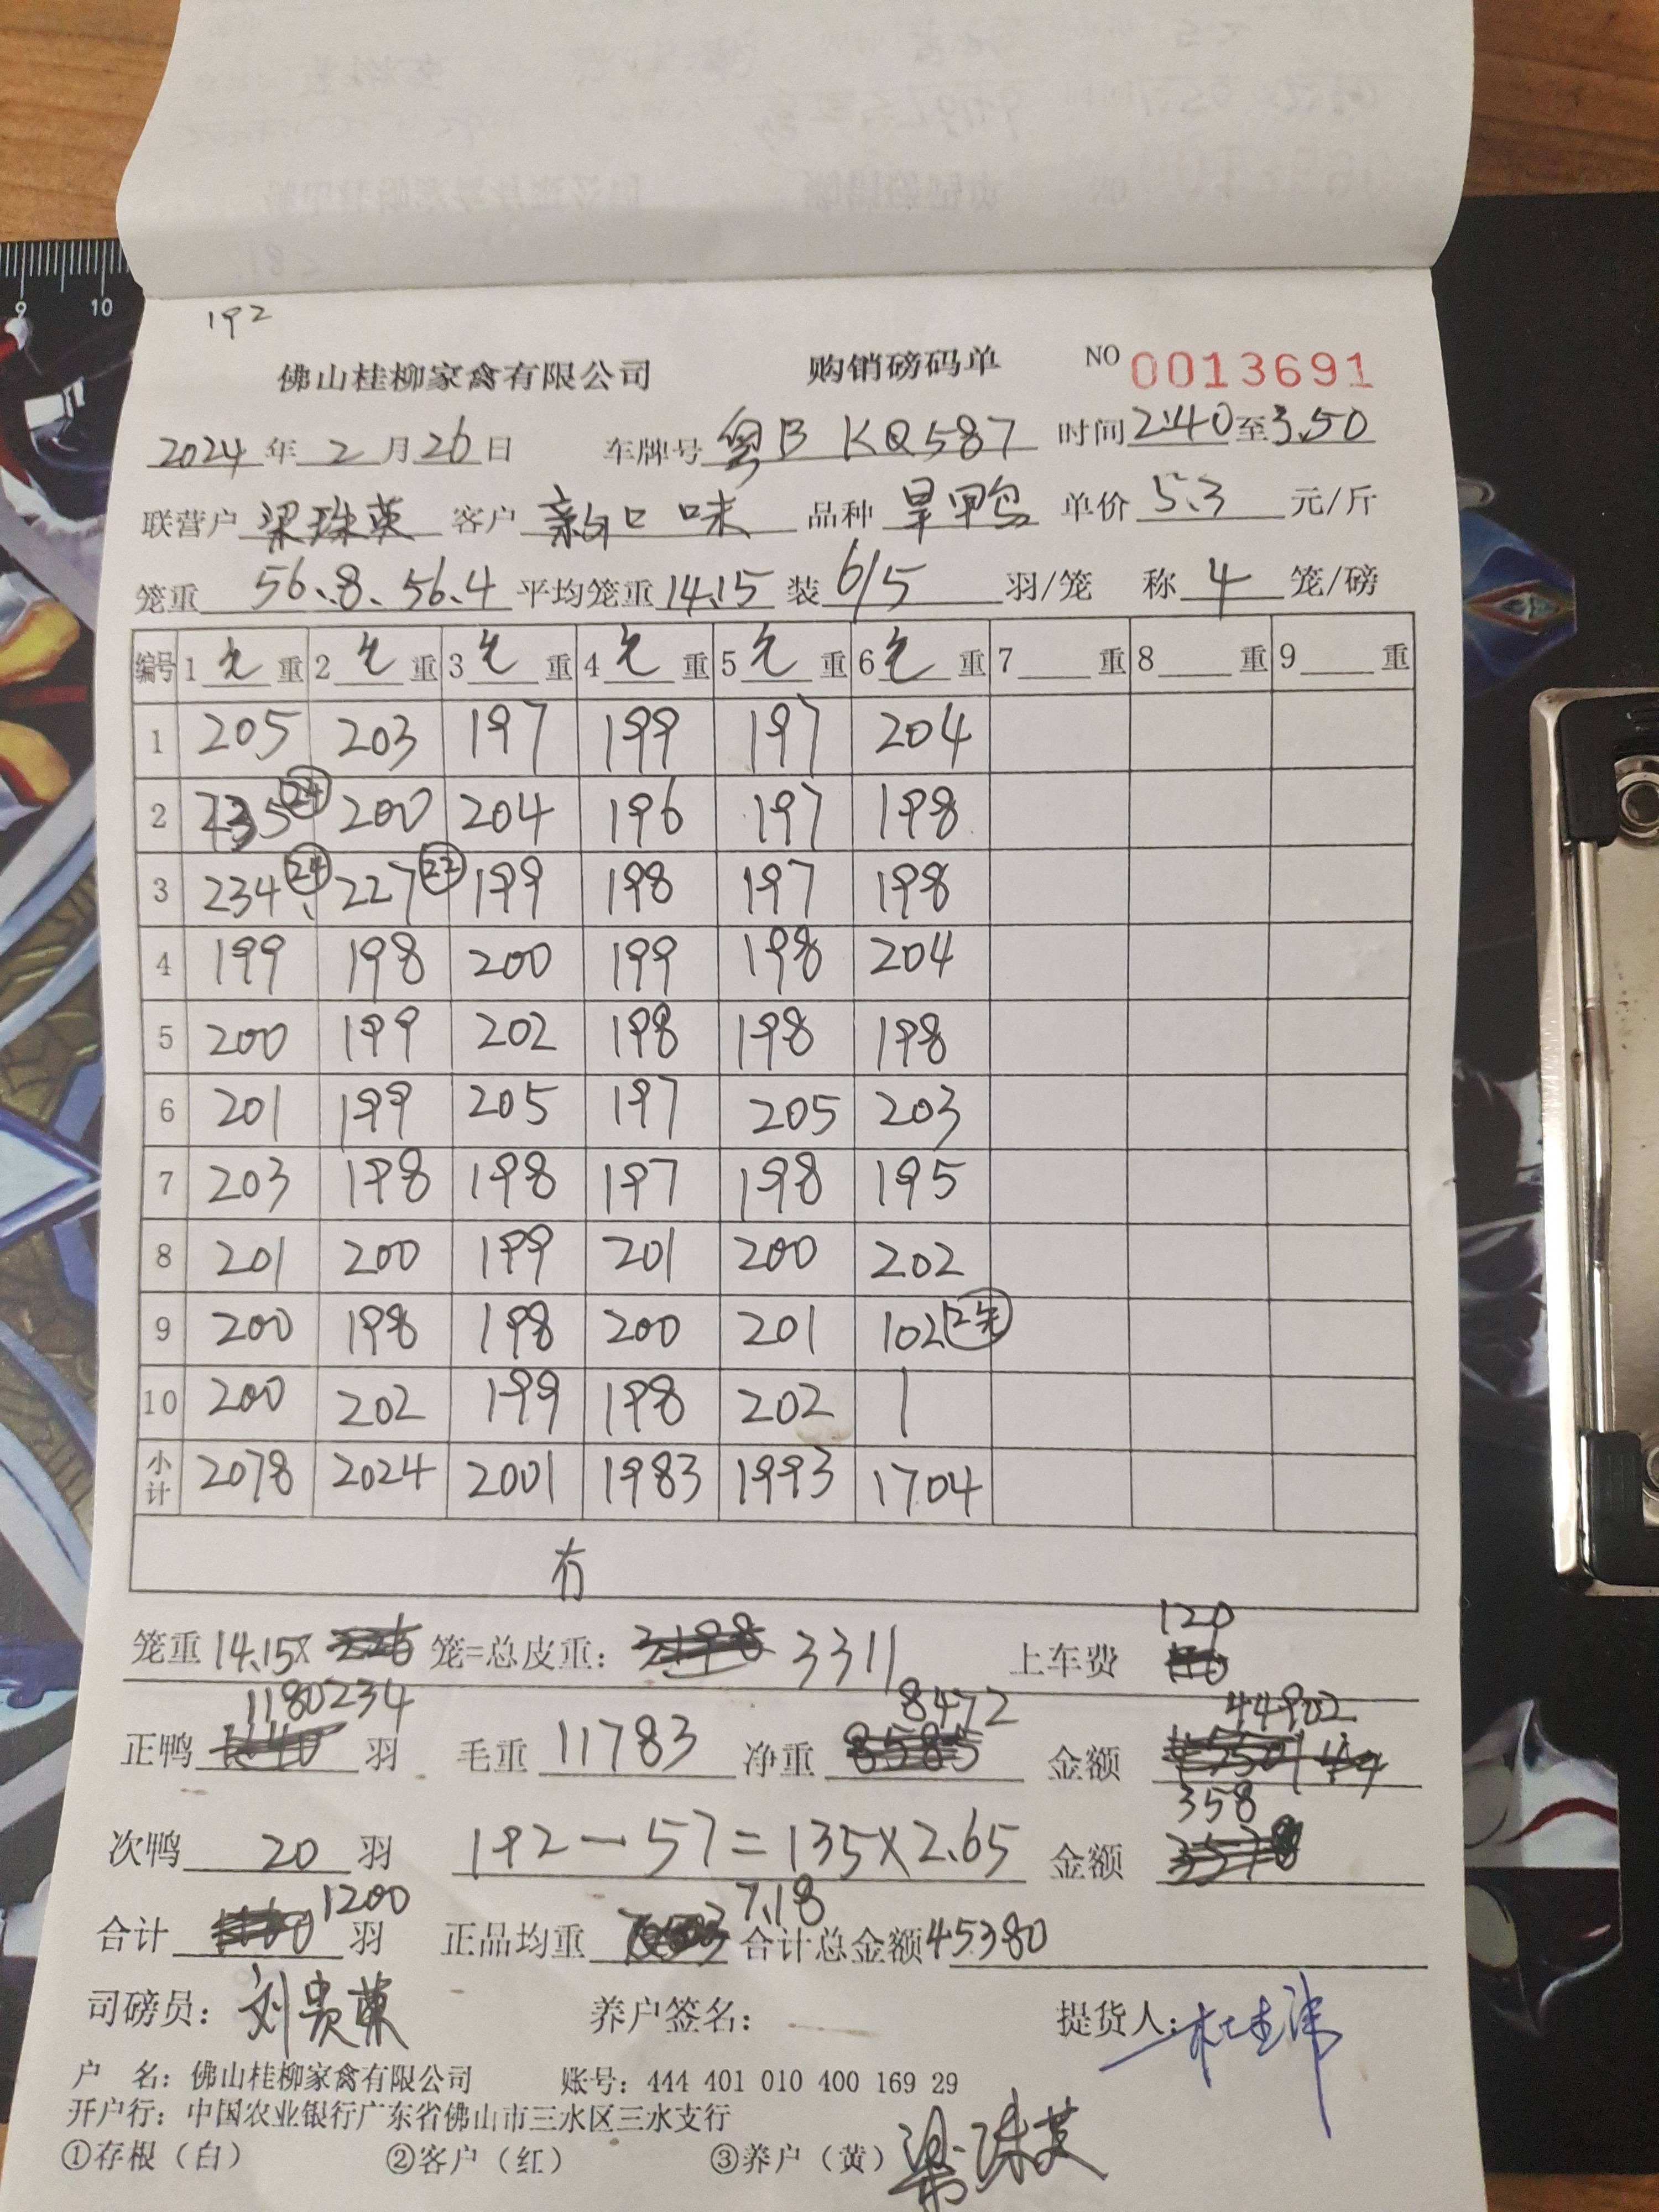 9 10
192
佛山桂柳家禽有限公司 购销磅码单 NO 0013691
2024年2月26日 车牌号 粤B KQ587 时间 2:40 至 3.50
联营户 梁珠英 客户 新口味 品种 旱鸭 单价 5.3 元/斤
笼重 56.8、56.4 平均笼重 14.15 装 6/5 羽/笼 称 4 笼/磅
编号 1 毛 重 2 毛 重 3 毛 重 4 毛 重 5 毛 重 6 毛 重 7 重 8 重 9 重
1 205 203 197 199 197 204
2 235 24 200 204 196 197 198
3 234 24 227 22 199 198 197 198
4 199 198 200 199 198 204
5 200 199 202 198 198 198
6 201 199 205 197 205 203
7 203 198 198 197 198 195
8 201 200 199 201 200 202
9 200 198 198 200 201 102
10 200 202 199 198 202
小计 2078 2024 2001 1983 1993 1704
冇
120
笼重 14.15× 笼=总皮重: 3311 上车费
1180 234 8472 44902
正鸭 羽 毛重 11783 净重 金额
358
次鸭 20 羽 192-57=135×2.65 金额
1200 7.18
合计 羽 正品均重 合计总金额 45380
司磅员: 刘贵荣 养户签名: 提货人:
户 名: 佛山桂柳家禽有限公司 账号: 444 401 010 400 169 29
开户行: 中国农业银行广东省佛山市三水区三水支行
①存根（白） ②客户（红） ③养户（黄） 梁珠英